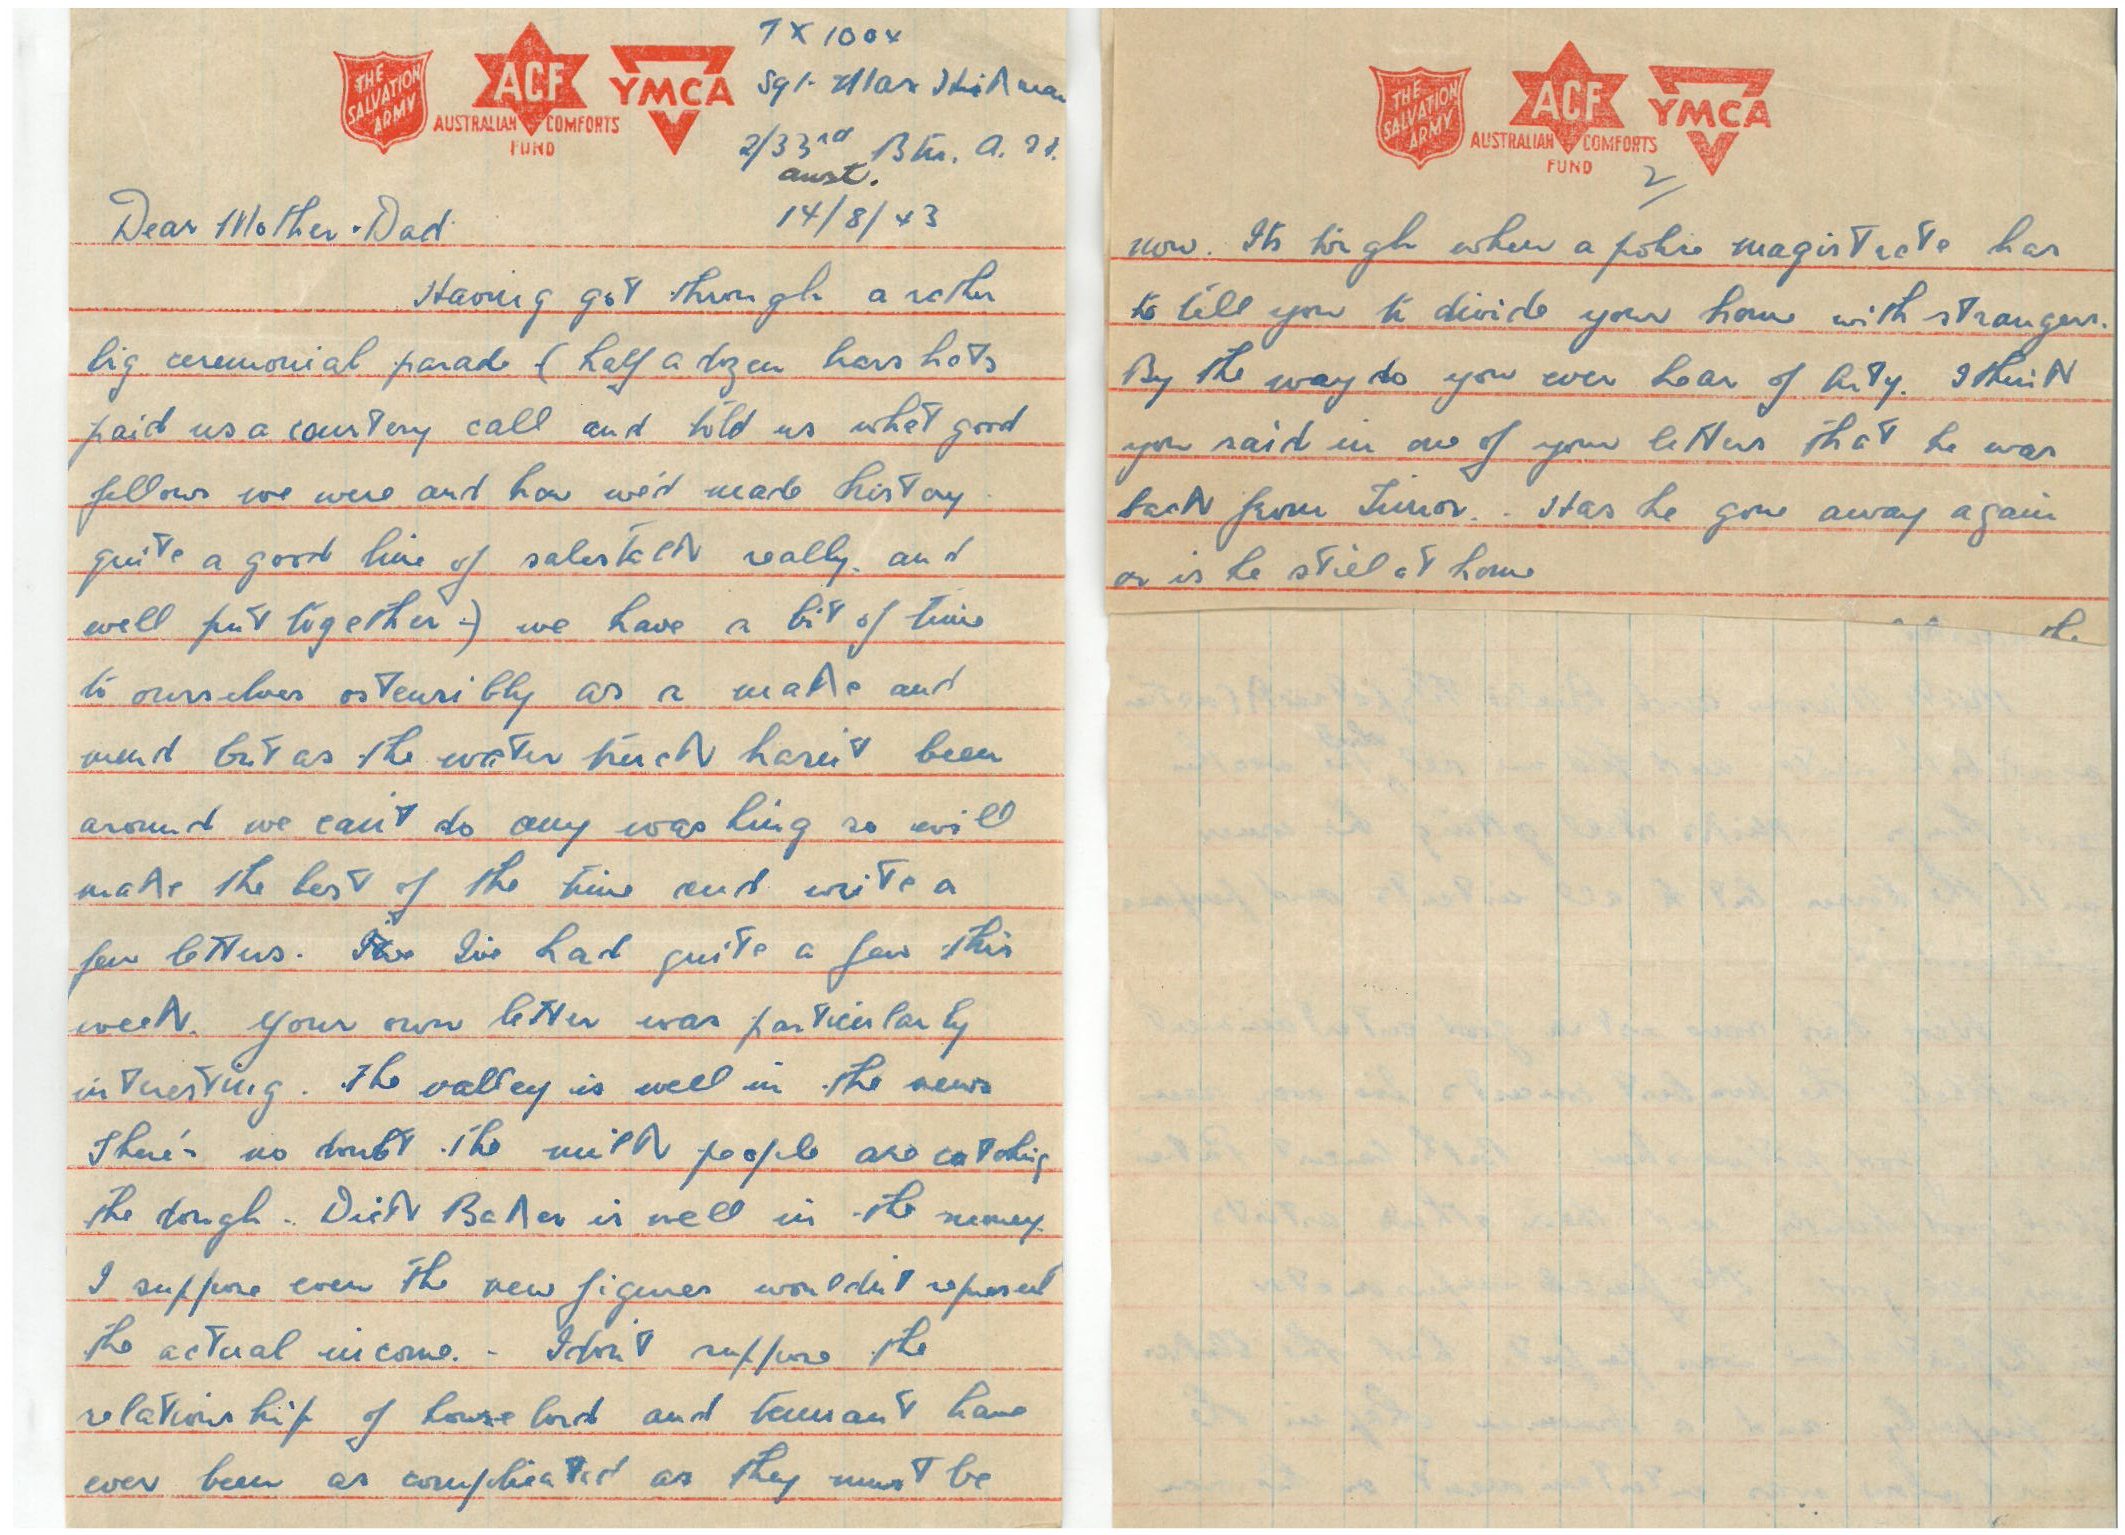 THE SALVATION ARMY
ACF
AUSTRALIAN COMFORTS FUND
YMCA
TX1004
Sgt. Max Hickman
2/33rd Btn. A.I.F.
aust.
14/8/43
Dear Mother & Dad
Having got through a rather
big ceremonial parade ( half a dozen brass hats
paid us a courtesy call and told us what good
fellows we were and how we'd made history
quite a good line of salestalk really. and
well put together -) we have a bit of time
to ourselves ostensibly as a make and
mend but as the water truck hasn't been
around we can't do any washing so will
make the best of the time and write a
few letters. I've had quite a few this
week. Your own letter was particularly
interesting. The valley is well in the news
There's no doubt the milk people are catching
the dough - Dick Baker is well in the money.
I suppose even the new figures wouldn't represent
the actual income. - I don't suppose the
relationship of house lord and tennant have
ever been as complicated as they must be
THE SALVATION ARMY
ACF
AUSTRALIAN COMFORTS FUND
YMCA
2/
now. Its tough when a police magistrate has
to tell you to divide your home with strangers.
By the way do you ever hear of Arty. I think
you said in one of your letters that he was
back from Timor. - Has he gone away again
or is he still at home
the